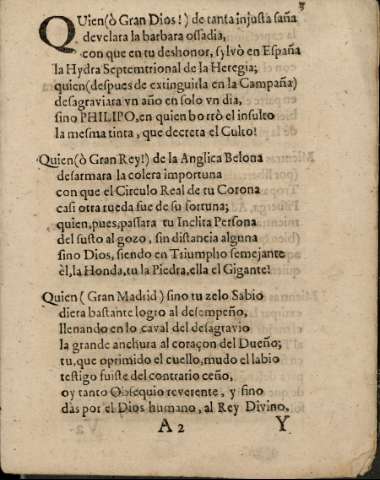 3
QUien(ò Gran Dios!) de tanta injusta saña
develara la barbara ossadia,
con que en tu deshonor, sylvò en España
la Hydra Septemtrional de la Heregia;
quien(despues de extinguirla en la Campaña)
desagraviara vn año en solo vn dia,
sino PHILIPO, en quien borrò el insulto
la mesma tinta, que decreta el Culto!
Quien(ò Gran Rey!) de la Anglica Belona
desarmara la colera importuna
con que el Circulo Real de tu Corona
casi otra rueda fue de su fortuna;
quien,pues,passara tu Inclita Persona
del susto al gozo, sin distancia alguna
sino Dios, siendo en Triumpho semejante
èl,la Honda,tu la Piedra,ella el Gigante!
Quien( Gran Madrid) sino tu zelo Sabio
diera bastante logro al desempeño,
llenando en lo caval del desagravio
la grande anchura al coraçon del Dueño;
tu,que oprimido el cuello,mudo el labio
testigo fuiste del contrario ceño,
oy tanto Obsequio reverente, y fino
das por el Dios humano, al Rey Divino.
A 2 Y